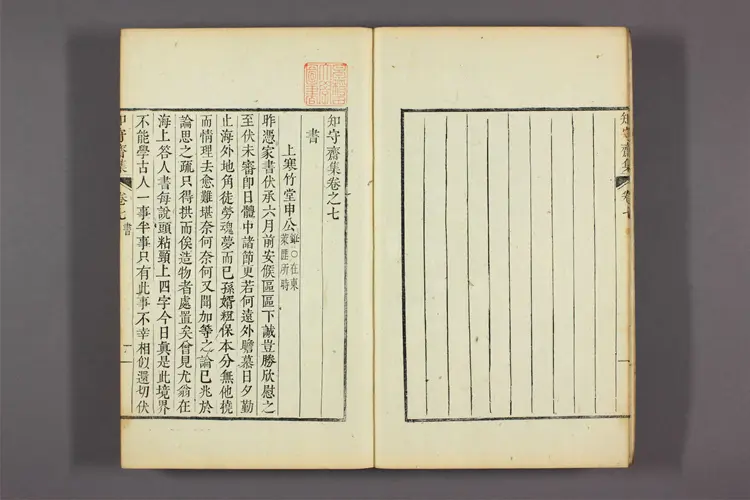 知守齋集卷之七
書
上寒竹堂申公
時在東
萊匪所時
昨憑家書伏承六月前安候區區下誠豈勝欣慰之
至伏未審卽日體中諸節更若何遠外瞻慕日夕勤
止海外地角徒勞魂夢而已孫婿粗保本分無他撓
而情理去愈難堪奈何奈何又聞加等之論已兆於
論思之疏只得拱而俟造物者處置矣曾見尤翁在
海上答人書每說頭粘頸上四字今日眞是此境界
不能學古人一事半事只有此事不幸相似還切伏
知守齋集
卷七
書
一
知守齋集
卷七